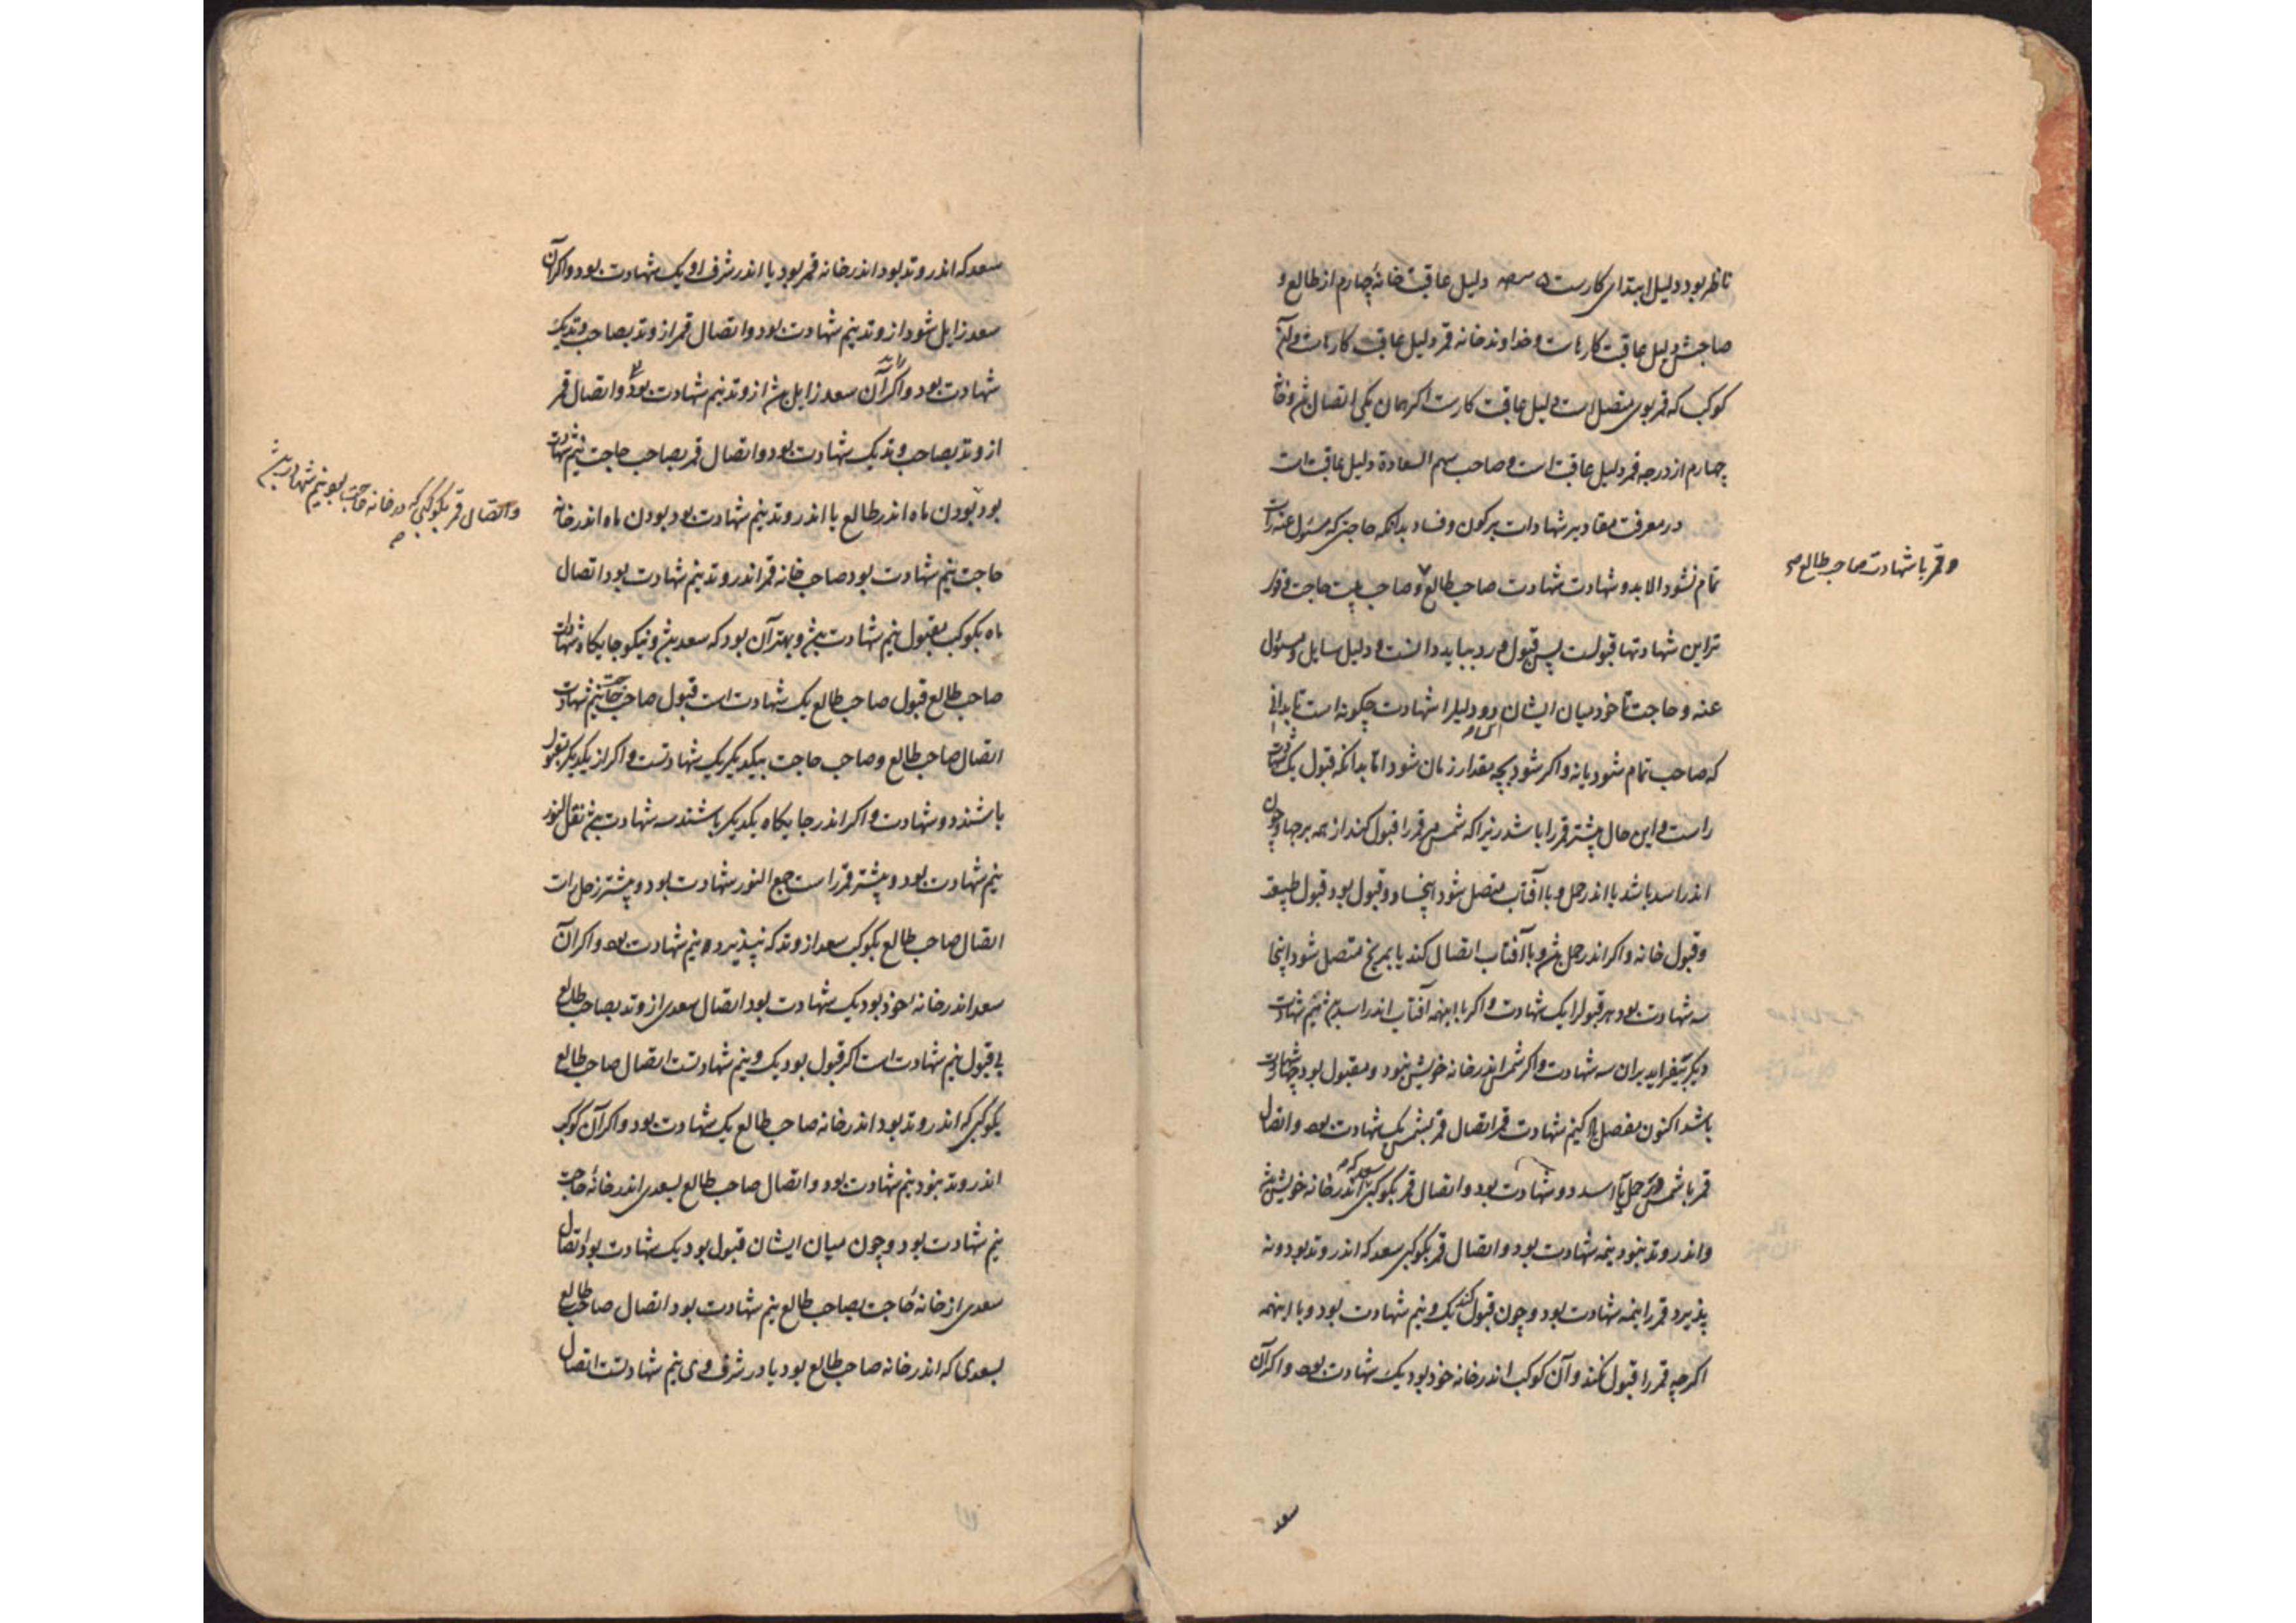 ناظر بود دلیل ابتدای کارست دلیل عاقبت خانهٔ چهارم از طالع و
صاحبش دلیل عاقبت کارست و خداوند خانه قمر دلیل عاقبت کارست و آن
کوکب که قمر بوی متصل است دلیل عاقبت کارست اکر همان یکی اتصال
چهارم از درجه قمر دلیل عاقبت است و صاحب سهم السعادة دلیل عاقبت است
در معرفت مقادیر شهادات بر کون و فساد بدانکه حاجتی که مسئول عنه راست
تمام نشود الا بدو شهادت شهادت صاحب طالع و صاحب بیت حاجت
و قمر با شهادت صاحب طالع صح
تر این شهادتها قبولست پس قبول و رد بباید دانست و دلیل سایل و مسئول
عنه و حاجت تا خود میان ایشان دو دلیل را شهادت چکونه است تا بدانی
که صاحب تمام شود یا نه و اکر شود بچه مقدار زمان شود اما بدانکه قبول یک شهادت
راست و این حال بیشتر قمر را باشد زیرا که شمس مر قمر را قبول کند از همه برجها و چون
اندر اسد باشد یا اندر حمل و با آفتاب متصل شود اینجا دو قبول بود قبول طبیعت
و قبول خانه و اکر اندر حمل بود و با آفتاب اتصال کند یا بمریخ متصل شود اینجا
سه شهادت بود هر قبول را یک شهادت و اکر با اینهمه آفتاب اندر اسد نیم شهادت
دیکر بیفزاید بران سه شهادت و اکر شمس اندر خانه خویش نبود و مقبول بود شهادت
باشد اکنون مفصل یاد کنیم شهادت قمر اتصال قمر بشمس یک شهادت بود و اتصال
قمر با شمس در حمل یا اسد دو شهادت بود و اتصال قمر بکوکبی سعد که اندر خانه خویش
و اندر وتد نبود نیمه شهادت بود و اتصال قمر بکوکبی سعد که اندر وتد بود و نه
پذیرد قمر را نیمه شهادت بود و چون قبول کند یک و نیم شهادت بود و با اینهمه
اکرچه قمر را قبول نکند و آن کوکب اندر خانه خود بود یک شهادت بود و اکر آن
سعد
سعد که اندر وتد بود اندر خانه قمر بود یا اندر شرف او یک شهادت بود و اکر آن
سعد زایل شود از وتد نیم شهادت بود و اتصال قمر از وتد بصاحب وتد یک
شهادت بود و اکر آن سعد زایل از وتد نیم شهادت بود و اتصال قمر
از وتد بصاحب وتد یک شهادت بود و اتصال قمر بصاحب حاجت نیم شهادت
و اتصال قمر بکوکبی که در خانه حاجت بود نیم شهادت
بود بودن ماه اندر طالع یا اندر وتد نیم شهادت بود بودن ماه اندر خانه
حاجت نیم شهادت بود صاحب خانه قمر اندر وتد نیم شهادت بود اتصال
ماه بکوکب مقبول نیم شهادت و بهتر آن بود که سعد و نیکو جایکاه شهادت
صاحب طالع قبول صاحب طالع یک شهادت است قبول صاحب حاجت نیم شهادت
اتصال صاحب طالع و صاحب حاجت بیکدیکر یک شهادتست و اکر از یکدیکر بقبول
باشند دو شهادت و اکر اندر جایکاه یکدیکر باشند سه شهادت نقل النور
نیم شهادت بود و بیشتر قمر راست جمع النور شهادت بود و بیشتر زحل راست
اتصال صاحب طالع بکوکب سعد از وتد که نپذیرد نیم شهادت بود و اکر آن
سعد اندر خانه خود بود یک شهادت بود اتصال سعدی از وتد بصاحب طالع
بی قبول نیم شهادت است اکر قبول بود یک و نیم شهادتست اتصال صاحب طالع
بکوکبی که اندر وتد بود اندر خانه صاحب طالع یک شهادت بود و اکر آن کوکب
اندر وتد نبود نیم شهادت بود و اتصال صاحب طالع بسعدی اندر خانهٔ حاجت
نیم شهادت بود و چون میان ایشان قبول بود یک شهادت بود اتصال
سعدی از خانهٔ حاجت بصاحب طالع نیم شهادت بود اتصال صاحب طالع
بسعدی که اندر خانه صاحب طالع بود یا در شرف وی نیم شهادتست اتصال